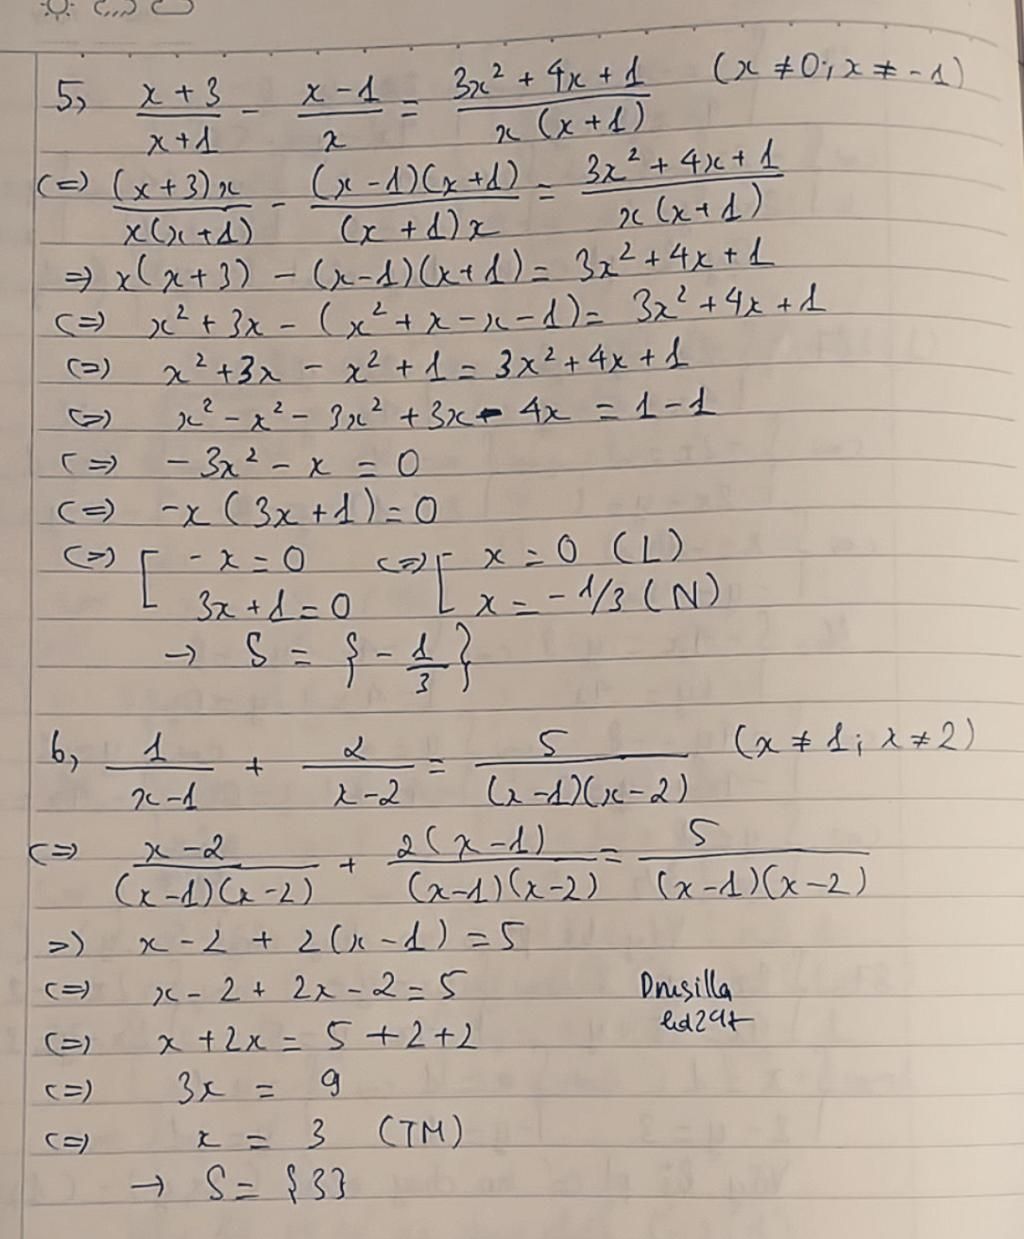 5, \frac{x+3}{x+1} - \frac{x-1}{x} = \frac{3x²+4x+1}{x(x+1)} (x ≠ 0; x ≠ -1)
(=) \frac{(x+3)x}{x(x+1)} - \frac{(x-1)(x+1)}{(x+1)x} = \frac{3x²+4x+1}{x(x+1)}
=) x(x+3) - (x-1)(x+1) = 3x²+4x+1
(=) x²+3x - (x²+x-x-1) = 3x²+4x+1
(=) x²+3x - x²+1 = 3x²+4x+1
(=) x² - x² - 3x² + 3x - 4x = 1-1
(=) -3x² - x = 0
(=) -x(3x+1) = 0
(=) [ -x = 0 (=) [ x = 0 (L)
3x+1 = 0 x = -1/3 (N)
→ S = {-\frac{1}{3}}
6, \frac{1}{x-1} + \frac{2}{x-2} = \frac{5}{(x-1)(x-2)} (x ≠ 1; x ≠ 2)
(=) \frac{x-2}{(x-1)(x-2)} + \frac{2(x-1)}{(x-1)(x-2)} = \frac{5}{(x-1)(x-2)}
=) x-2 + 2(x-1) = 5
(=) x-2+2x-2 = 5
Drusilla
(=) x+2x = 5+2+2
(=) 3x = 9
(=) x = 3 (TM)
→ S = {3}